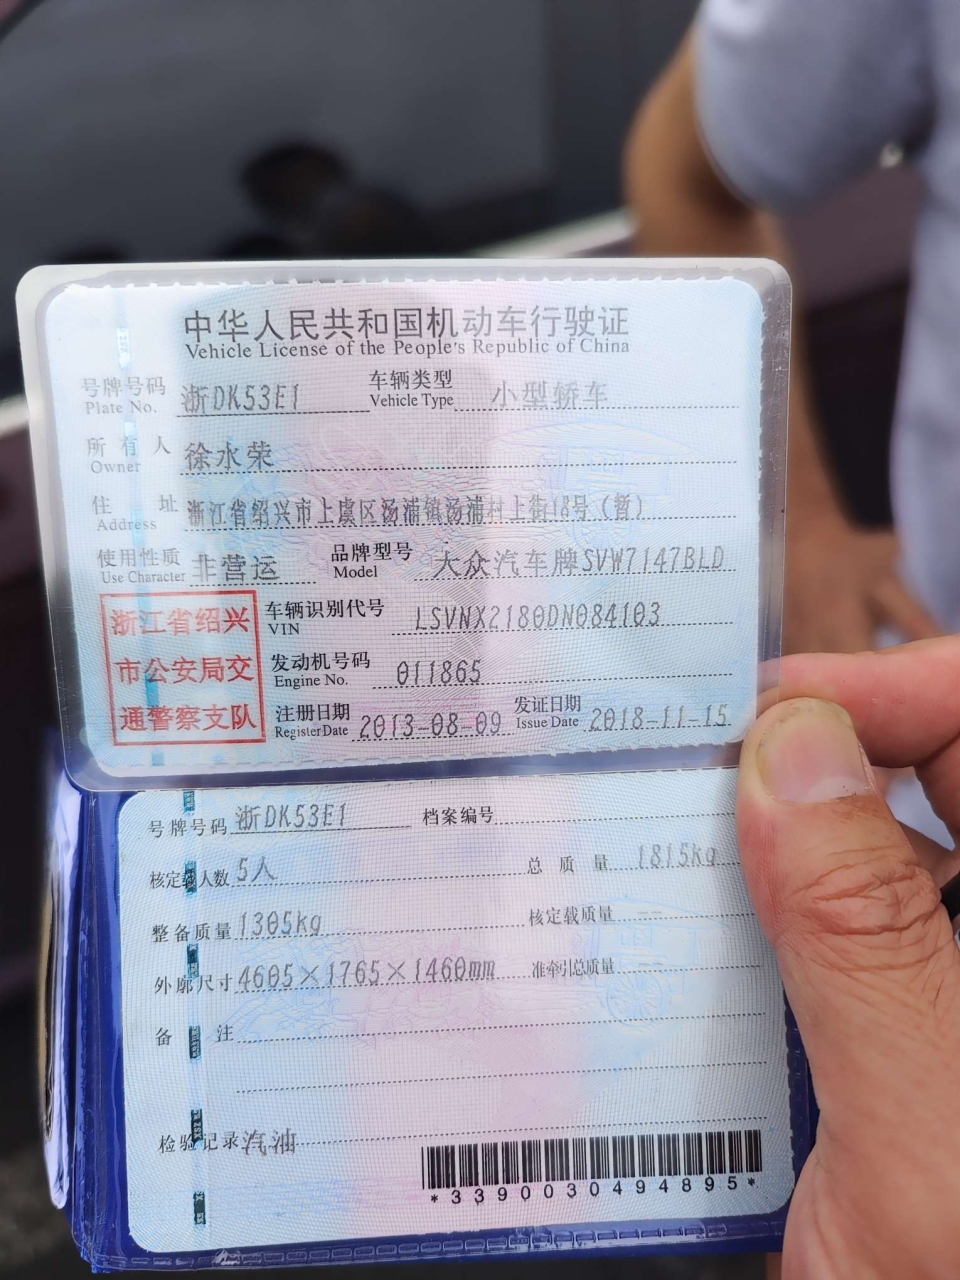 中华人民共和国机动车行驶证
Vehicle License of the People's Republic of China
号牌号码 浙DK53E1 车辆类型 小型轿车
Plate No. Vehicle Type
所有人 徐水荣
Owner
住址 浙江省绍兴市上虞区汤浦镇汤浦村上街18号（暂）
Address
使用性质 非营运 品牌型号 大众汽车牌SVW7147BLD
Use Character Model
浙江省绍兴
市公安局交
通警察支队
车辆识别代号 LSVNX2180DN084103
VIN
发动机号码 011865
Engine No.
注册日期 2013-08-09 发证日期 2018-11-15
Register Date Issue Date
号牌号码 浙DK53E1 档案编号
核定载人数 5人 总质量 1815kg
整备质量 1305kg 核定载质量 --
外廓尺寸 4605×1765×1460mm 准牵引总质量 --
备注
检验记录 汽油
*3390030494895*